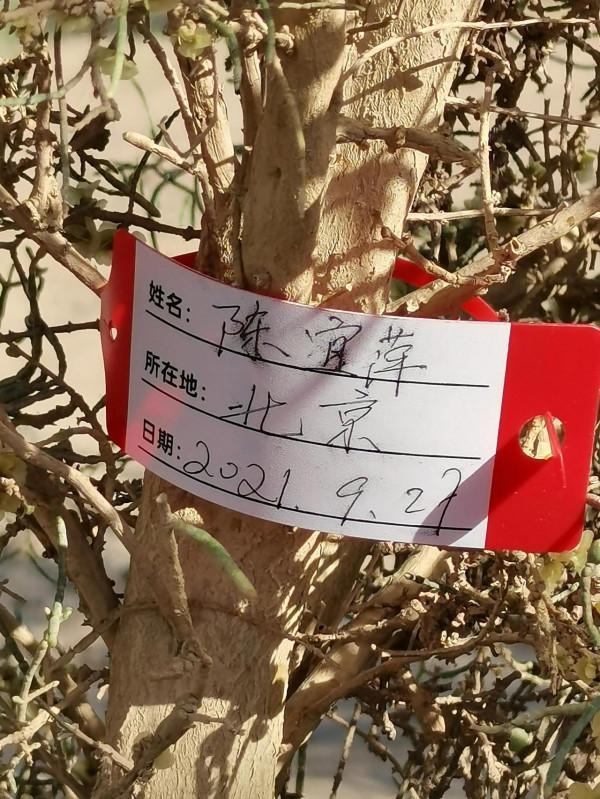 姓名: 陈宜萍
所在地: 北京
日期: 2021.9.27